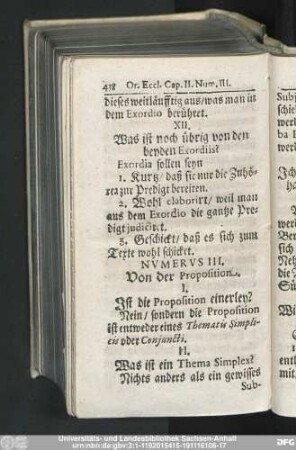 438 Or. Eccl. Cap. II. Num. III.
dieses weitläufftig aus/was man in
dem Exordio berühret.
XII.
Was ist noch übrig von den
beyden Exordiis?
Exordia sollen seyn
1. Kurtz/ daß sie nur die Zuhö-
rer zur Predigt bereiten.
2. Wohl elaborirt/ weil man
aus dem Exordio die gantze Pre-
digt judicirt.
3. Geschickt/ daß es sich zum
Texte wohl schicket.
NVMERVS III.
Von der Proposition.
I.
Ist die Proposition einerley?
Nein/ sondern die Proposition
ist entweder eines Thematis Simpli-
cis oder Conjuncti.
II.
Was ist ein Thema Simplex?
Nichts anders als ein gewisses
Sub-
Universitäts- und Landesbibliothek Sachsen-Anhalt
urn:nbn:de:gbv:3:1-1192015415-191116106-17
DFG